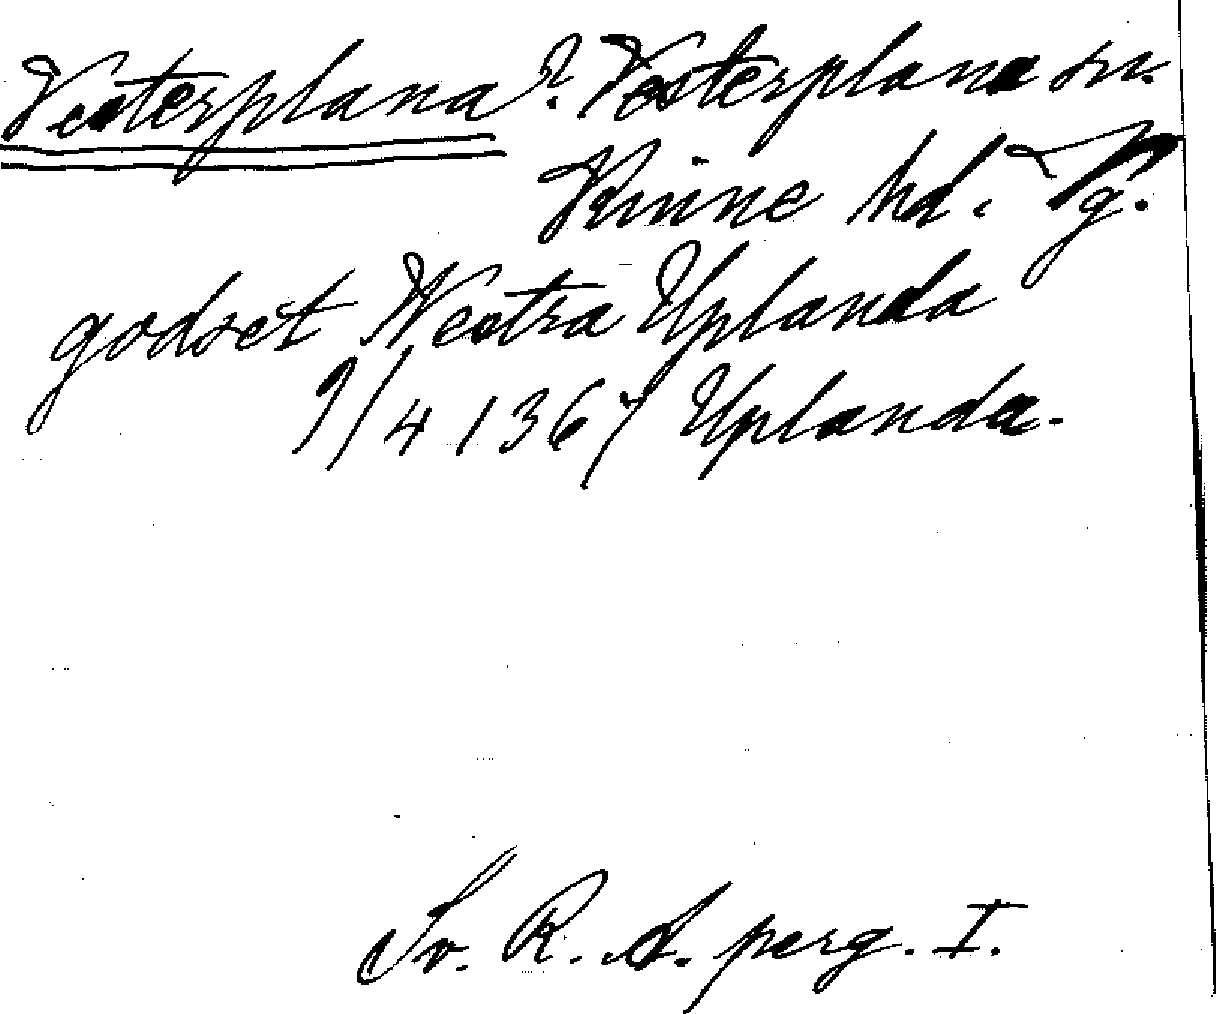 Vesterplana? Vesterplana sn.
Kinne hd. Vg.
godset Westra Uplanda
9/4 1367 Uplanda.
Sv. R. A. perg. I.